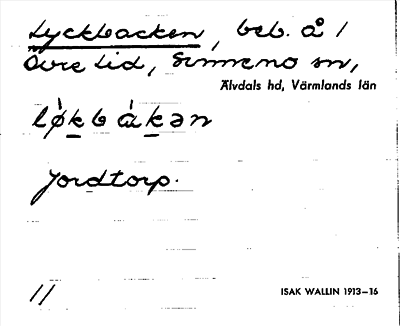 Lyckbacken, beb. å 1
Övre Lid, Sunnemo sn,
Älvdals hd, Värmlands län
lø̀kbàkən
Jordtorp.
11
ISAK WALLIN 1913–16